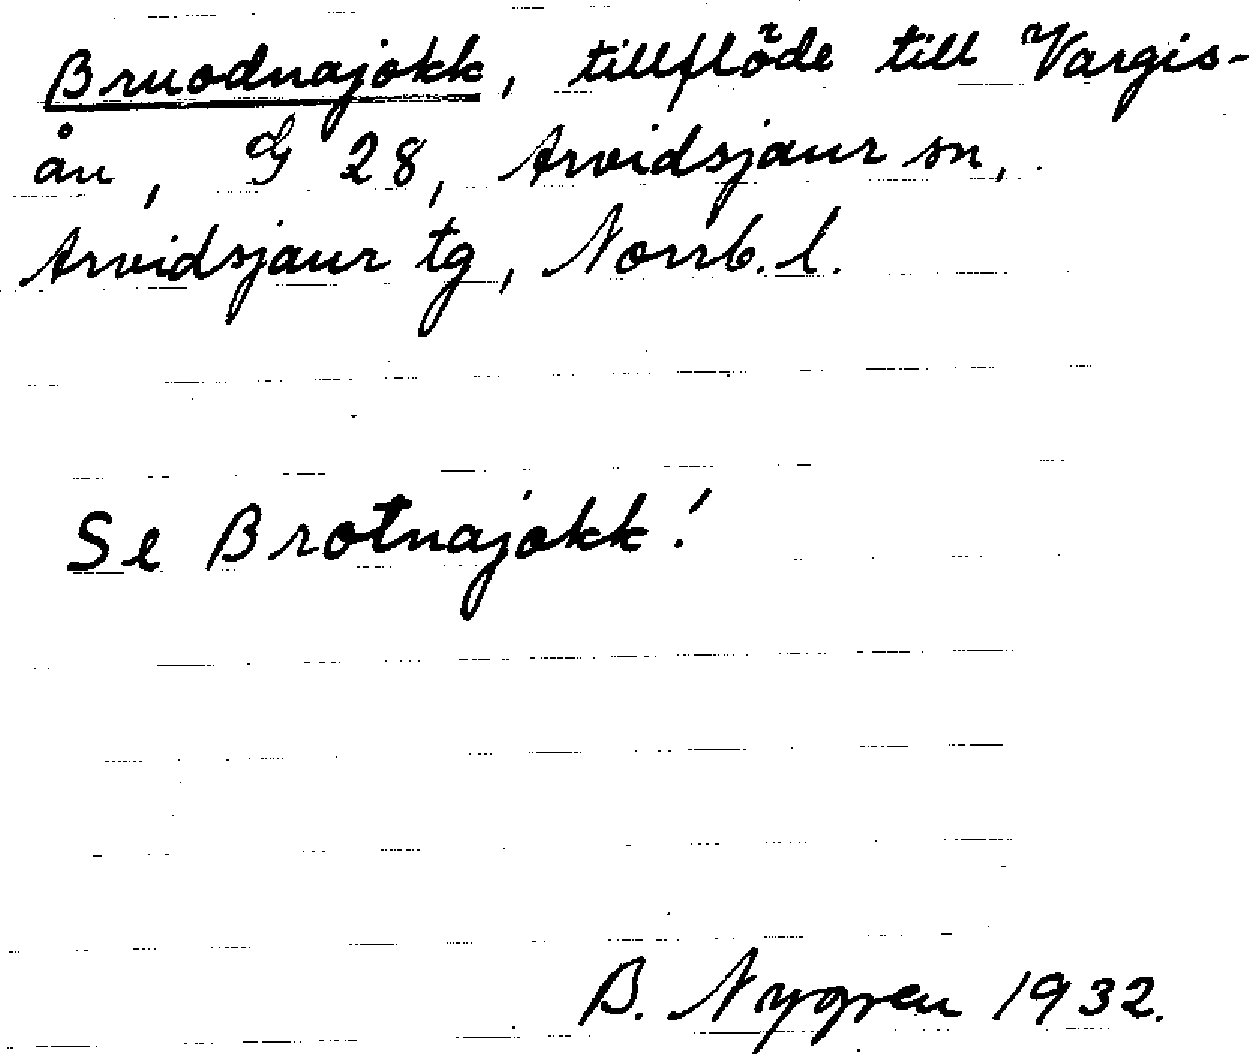 Bruodnajokk, tillflöde till Vargis-
ån, G 28, Arvidsjaur sn,
Arvidsjaur tg, Norrb. l.
Se Brotnajokk!
B. Nygren 1932.